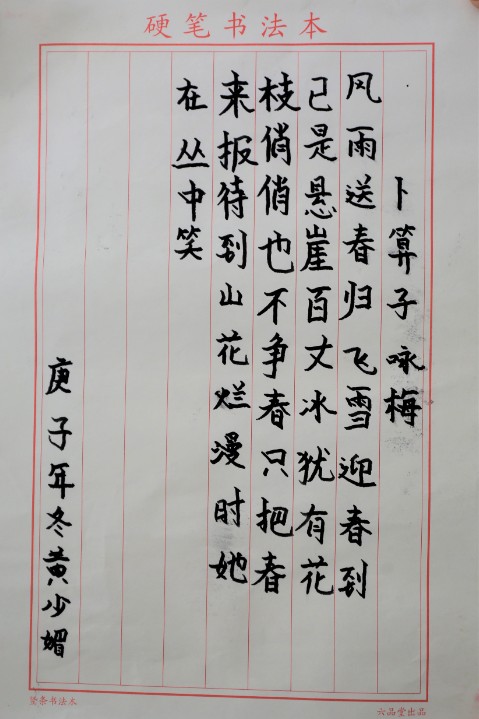 硬笔书法本
卜算子咏梅
风雨送春归飞雪迎春到
已是悬崖百丈冰犹有花
枝俏俏也不争春只把春
来报待到山花烂漫时她
在丛中笑
庚子年冬黄少媚
竖条书法本
六品堂出品